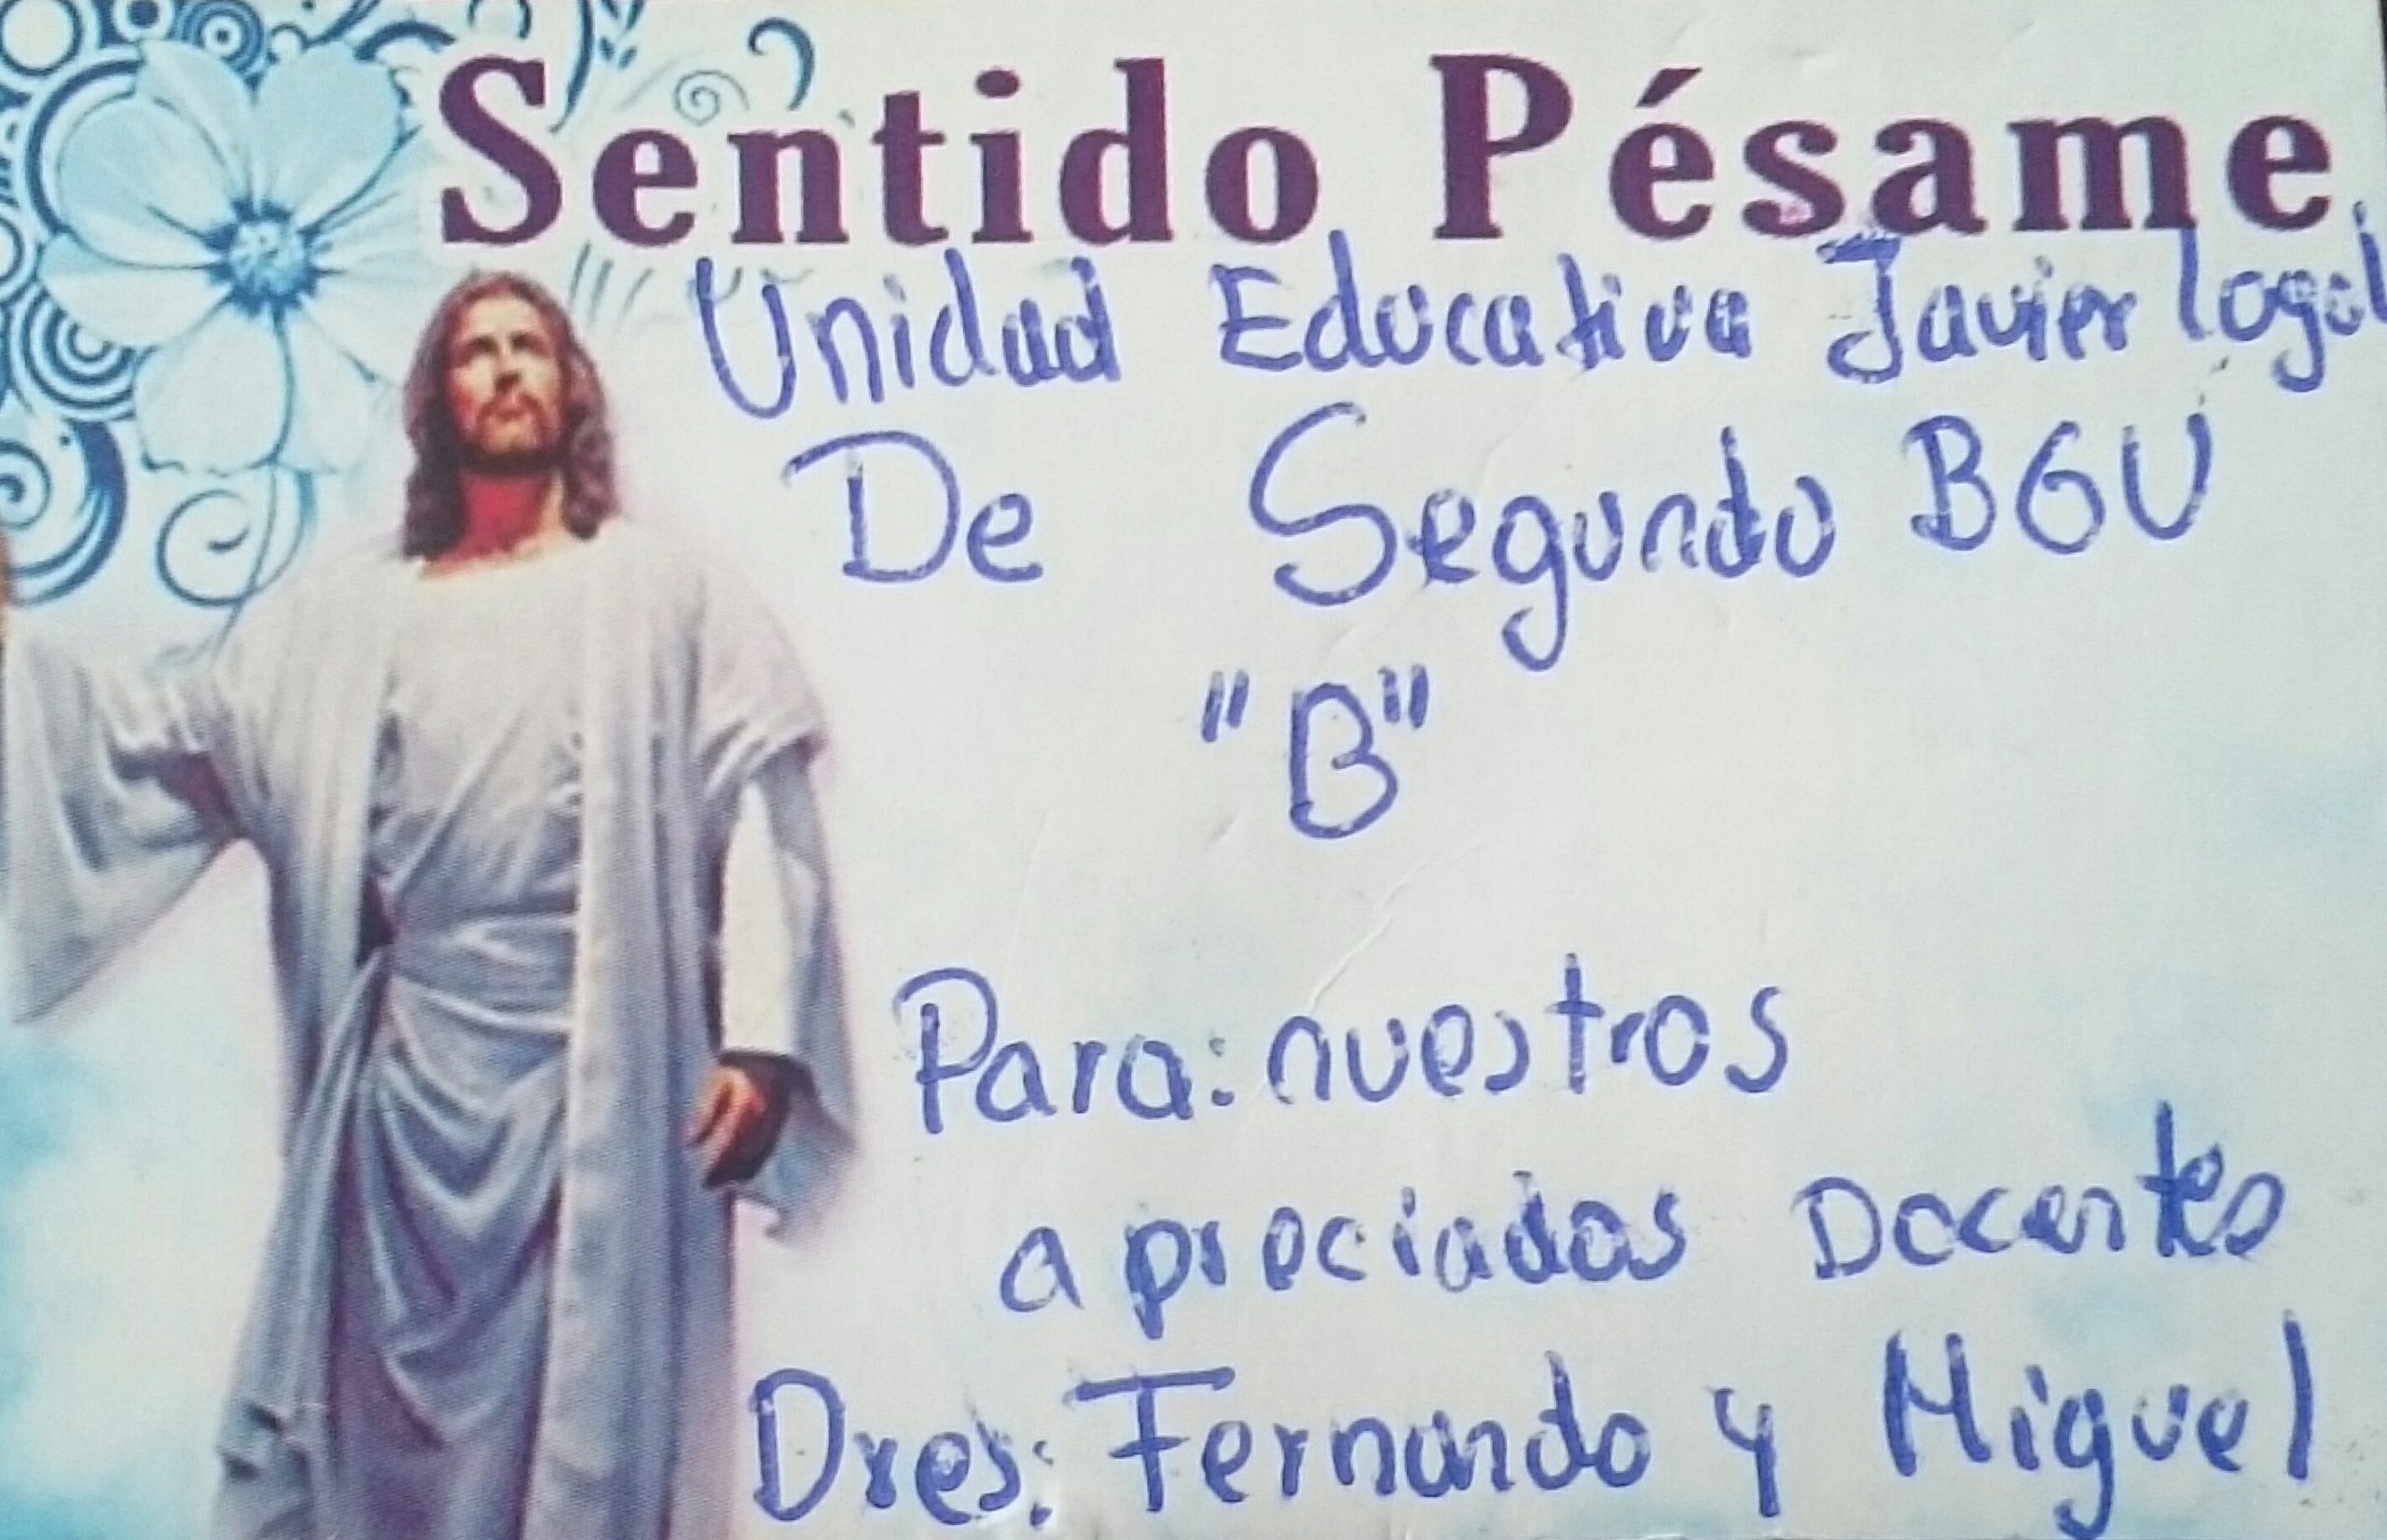 Sentido Pésame
Unidad Educativa Javier
De Segundo BGU
"B"
Para: nuestros
apreciados Docentes
Dres: Fernando y Miguel